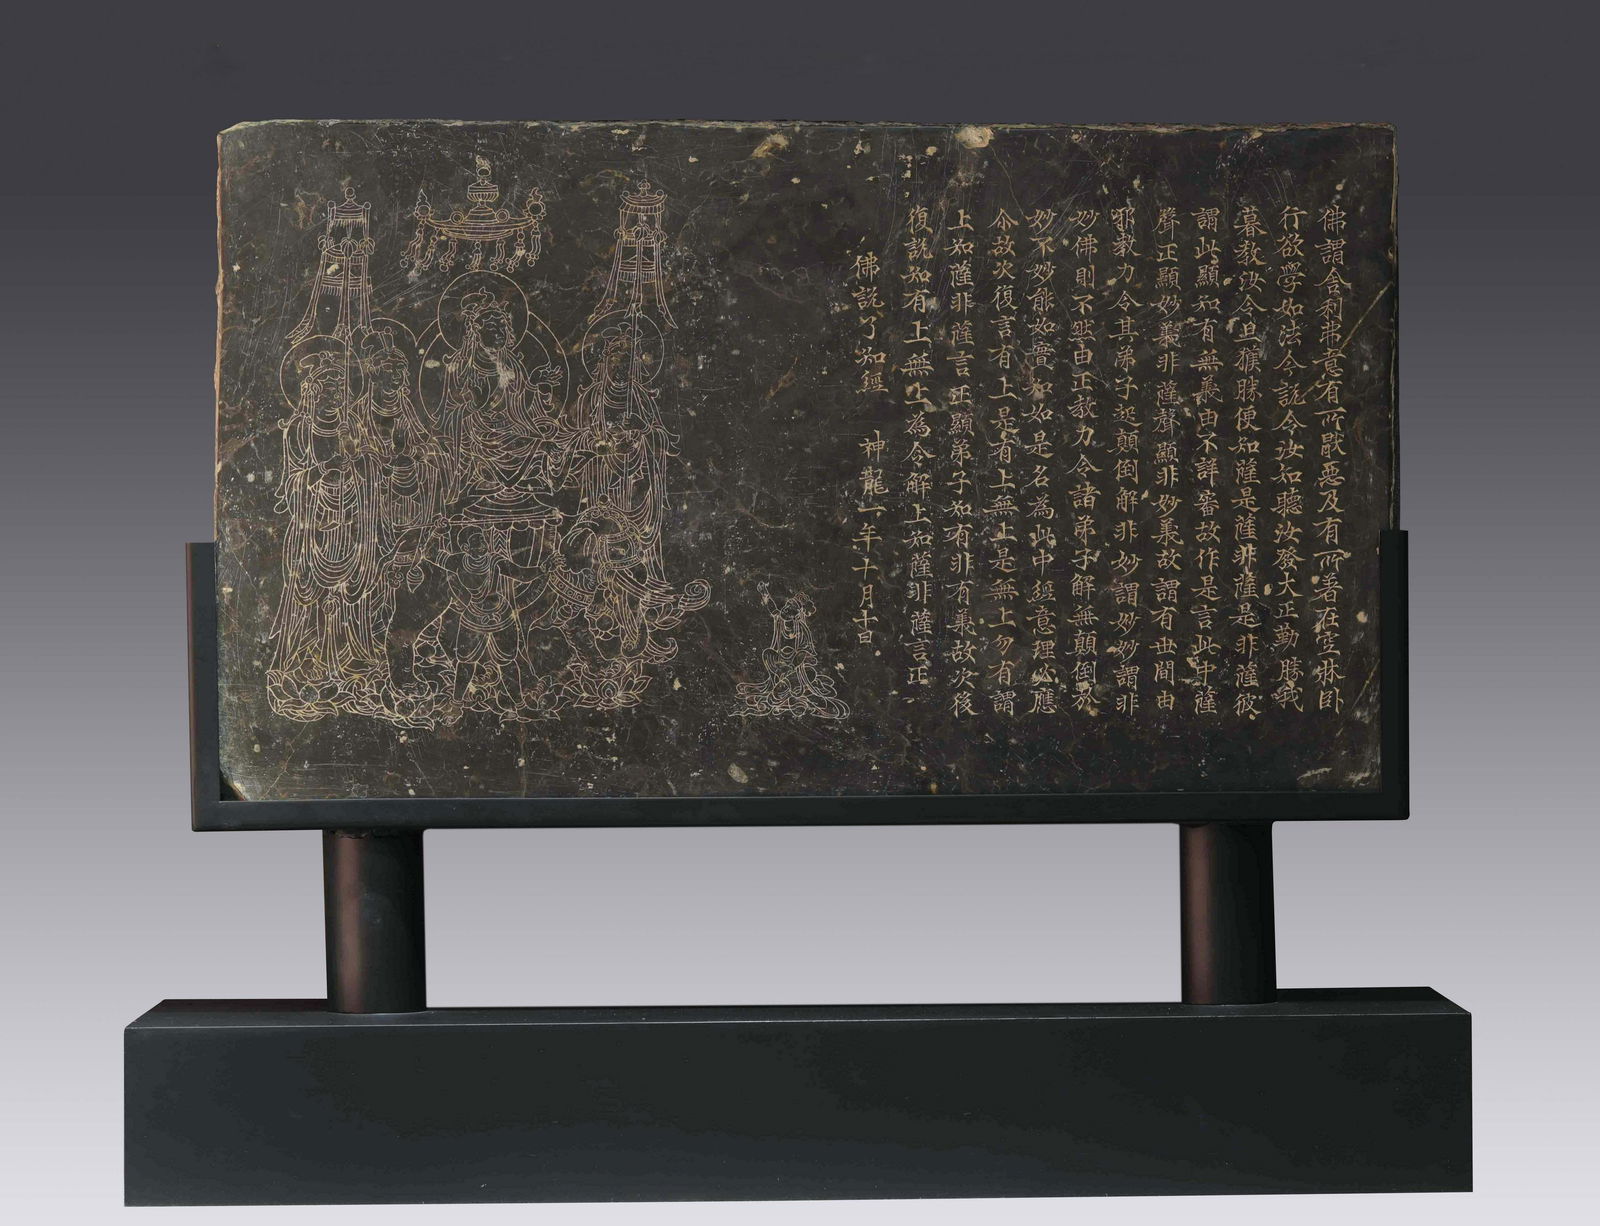 佛謂舍利弗意有所猒惡及有所著在空牀臥
行欲學如法今說令汝知聽汝發大正勤勝我
暮教汝令旦獲勝便知薩是薩非薩是非薩彼
謂此顯知有無義由不詳審故作是言此中薩
聲正顯妙義非薩聲顯非妙義故謂有世間由
邪教力令其弟子起顛倒解非妙謂妙妙謂非
妙佛則不然由正教力令諸弟子解無顛倒於
妙不妙能如實知如是名為此中經意理必應
尒故次復言有上是有上無上是無上勿有謂
上知薩非薩言正顯弟子知有非有義故次後
復說知有上無上為令解上知薩非薩言正
佛說了知經 神龍一年十月十日